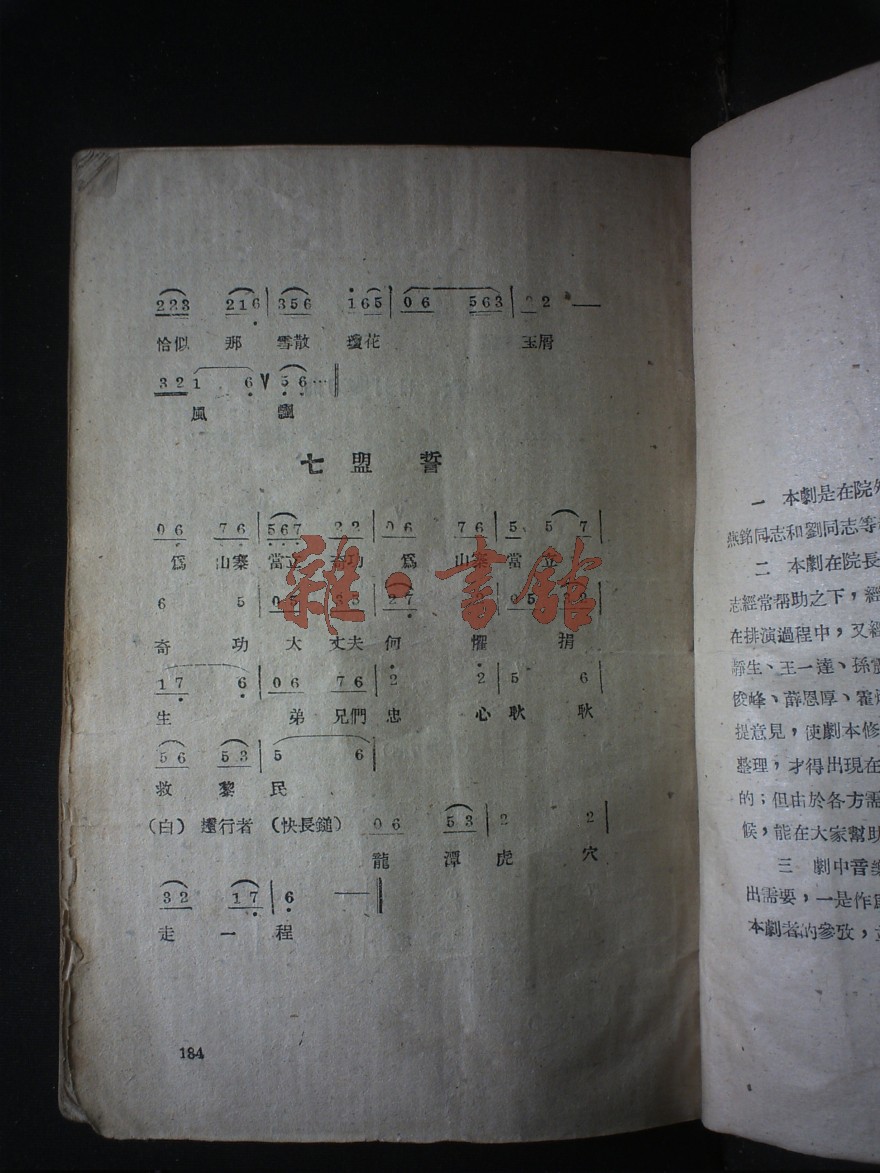 2 2 3 2 1 6 | 3 5 6 1 6 5 | 0 6 5 6 3 | 2 2 —
恰似 那 雪散 瓊花 玉屑
3 2 1 6 V 5 6 … ‖
風 飄
七 盟 誓
0 6 7 6 | 5 6 7 2 2 | 0 6 7 6 | 5 5 7 |
爲 山寨 當立 奇功 爲 山寨 當 立
6 5 | 0 5 3 5 | 2 7 2 | 0 5 3 2 |
奇 功 大 丈夫 何 懼 捐
1 7 6 | 0 6 7 6 | 2 2 | 5 6 |
生 弟 兄們 忠 心 耿 耿
5 6 5 3 | 5 6 |
救 黎 民
(白) 邐行者 (快長鎚) 0 6 5 3 | 2 2 |
龍 潭 虎 穴
3 2 1 7 | 6 — ‖
走 一 程
184
雜·書館
一 本劇是在院
燕銘同志和劉同志等
二 本劇在院長
志經常帮助之下，經
在排演過程中，又經
靜生、王一達、孫震
俊峰、薛恩厚、霍
提意見，使劇本修
整理，才得出現在
的；但由於各方需
候，能在大家幫助
三 劇中音樂
出需要，一是作爲
本劇者的參攷，